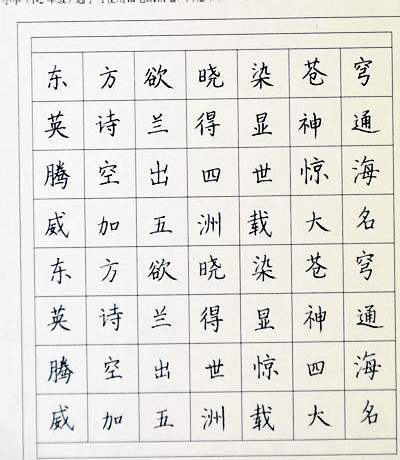 东方欲晓染苍穹
英诗兰得显神通
腾空出四世惊海
威加五洲载大名
东方欲晓染苍穹
英诗兰得显神通
腾空出世惊四海
威加五洲载大名